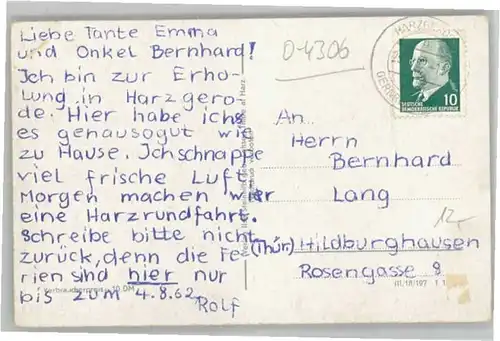 Liebe Tante Emma
und Onkel Bernhard!
Ich bin zur Erho-
lung in Harzgero-
de. Hier habe ich
es genausogut wie
zu Hause. Ich schnappe
viel frische Luft.
Morgen machen wir
eine Harzrundfahrt.
Schreibe bitte nicht
zurück, denn die Fe-
rien sind hier nur
bis zum 4.8.62
Rolf
0-4306
DEUTSCHE
DEMOKRATISCHE REPUBLIK
10
An
Herrn
Bernhard
Lang
12,-
(Thür.) Hildburghausen
Rosengasse 8
III/18/197